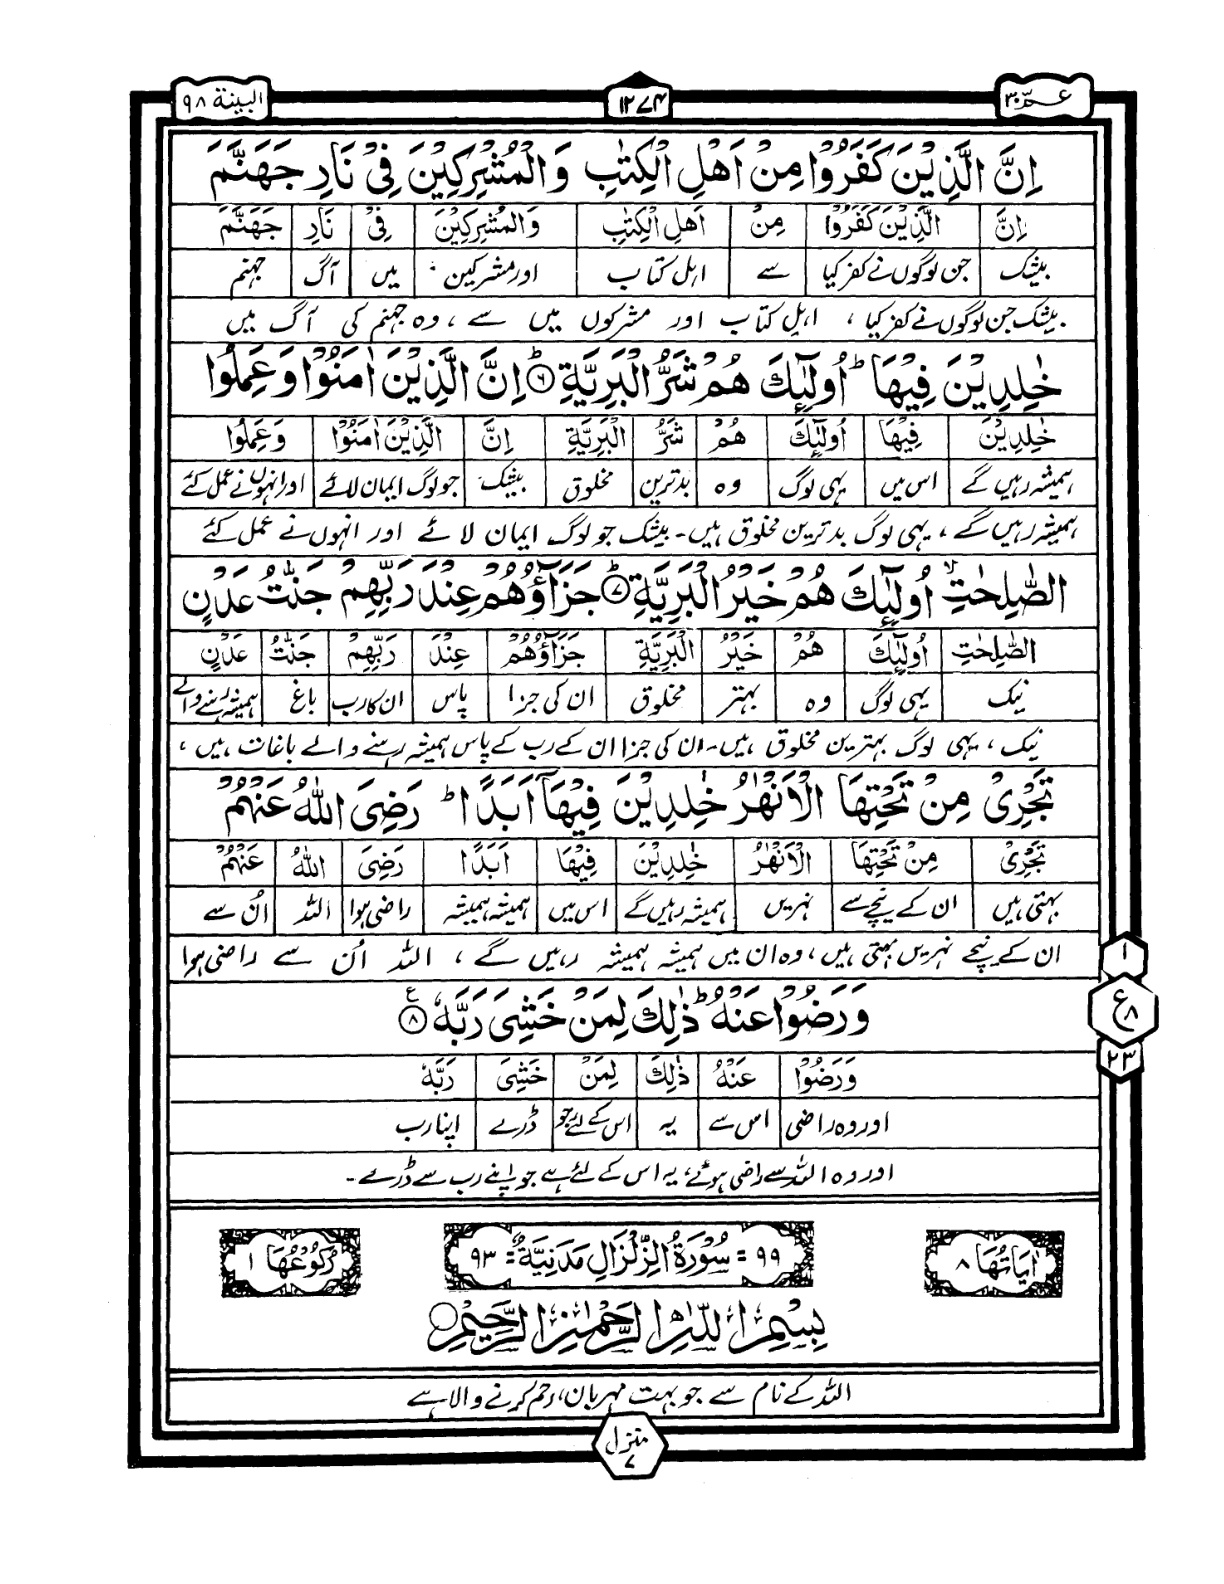 عـم ٣٠
١٢٧٤
البينة ٩٨
اِنَّ الَّذِيْنَ كَفَرُوْا مِنْ اَهْلِ الْكِتٰبِ وَالْمُشْرِكِيْنَ فِيْ نَارِ جَهَنَّمَ
اِنَّ الَّذِيْنَ كَفَرُوْا مِنْ اَهْلِ الْكِتٰبِ وَالْمُشْرِكِيْنَ فِيْ نَارِ جَهَنَّمَ
بیشک جن لوگوں نے کفر کیا سے اہل کتاب اور مشرکین میں آگ جہنم
بیشک جن لوگوں نے کفر کیا ، اہلِ کتاب اور مشرکوں میں سے ، وہ جہنم کی آگ میں
خٰلِدِيْنَ فِيْهَا ؕ اُولٰٓئِكَ هُمْ شَرُّ الْبَرِيَّةِ ؕ ٦ اِنَّ الَّذِيْنَ اٰمَنُوْا وَعَمِلُوا
خٰلِدِيْنَ فِيْهَا اُولٰٓئِكَ هُمْ شَرُّ الْبَرِيَّةِ اِنَّ الَّذِيْنَ اٰمَنُوْا وَعَمِلُوا
ہمیشہ رہیں گے اس میں یہی لوگ وہ بدترین مخلوق بیشک جو لوگ ایمان لائے اور انہوں نے عمل کئے
ہمیشہ رہیں گے ، یہی لوگ بدترین مخلوق ہیں۔ بیشک جو لوگ ایمان لائے اور انہوں نے عمل کئے
الصّٰلِحٰتِ ۙ اُولٰٓئِكَ هُمْ خَيْرُ الْبَرِيَّةِ ؕ ٧ جَزَآؤُهُمْ عِنْدَ رَبِّهِمْ جَنّٰتُ عَدْنٍ
الصّٰلِحٰتِ اُولٰٓئِكَ هُمْ خَيْرُ الْبَرِيَّةِ جَزَآؤُهُمْ عِنْدَ رَبِّهِمْ جَنّٰتُ عَدْنٍ
نیک یہی لوگ وہ بہتر مخلوق ان کی جزا پاس ان کا رب باغ ہمیشہ بسنے والے
نیک ، یہی لوگ بہترین مخلوق ہیں۔ ان کی جزا ان کے رب کے پاس ہمیشہ رہنے والے باغات ہیں ،
تَجْرِيْ مِنْ تَحْتِهَا الْاَنْهٰرُ خٰلِدِيْنَ فِيْهَآ اَبَدًا ؕ رَضِيَ اللّٰهُ عَنْهُمْ
تَجْرِيْ مِنْ تَحْتِهَا الْاَنْهٰرُ خٰلِدِيْنَ فِيْهَا اَبَدًا رَضِيَ اللّٰهُ عَنْهُمْ
بہتی ہیں ان کے نیچے سے نہریں ہمیشہ رہیں گے اس میں ہمیشہ ہمیشہ راضی ہوا اللہ اُن سے
ان کے نیچے نہریں بہتی ہیں ، وہ ان میں ہمیشہ ہمیشہ رہیں گے ، اللہ اُن سے راضی ہوا
١
وَرَضُوْا عَنْهُ ؕ ذٰلِكَ لِمَنْ خَشِيَ رَبَّهٗ ٨ ع
ع ٨
٢٣
وَرَضُوْا عَنْهُ ذٰلِكَ لِمَنْ خَشِيَ رَبَّهٗ
اور وہ راضی اس سے یہ اس کے لئے جو ڈرے اپنا رب
اور وہ اللہ سے راضی ہوئے، یہ اس کے لئے ہے جو اپنے رب سے ڈرے۔
اٰيَاتُهَا ٨
٩٩ = سُوْرَةُ الزِّلْزَالِ مَدَنِيَّةٌ = ٩٣
رُكُوْعُهَا ١
بِسْمِ اللّٰهِ الرَّحْمٰنِ الرَّحِيْمِ
اللہ کے نام سے جو بہت مہربان، رحم کرنے والا ہے
منزل
٧